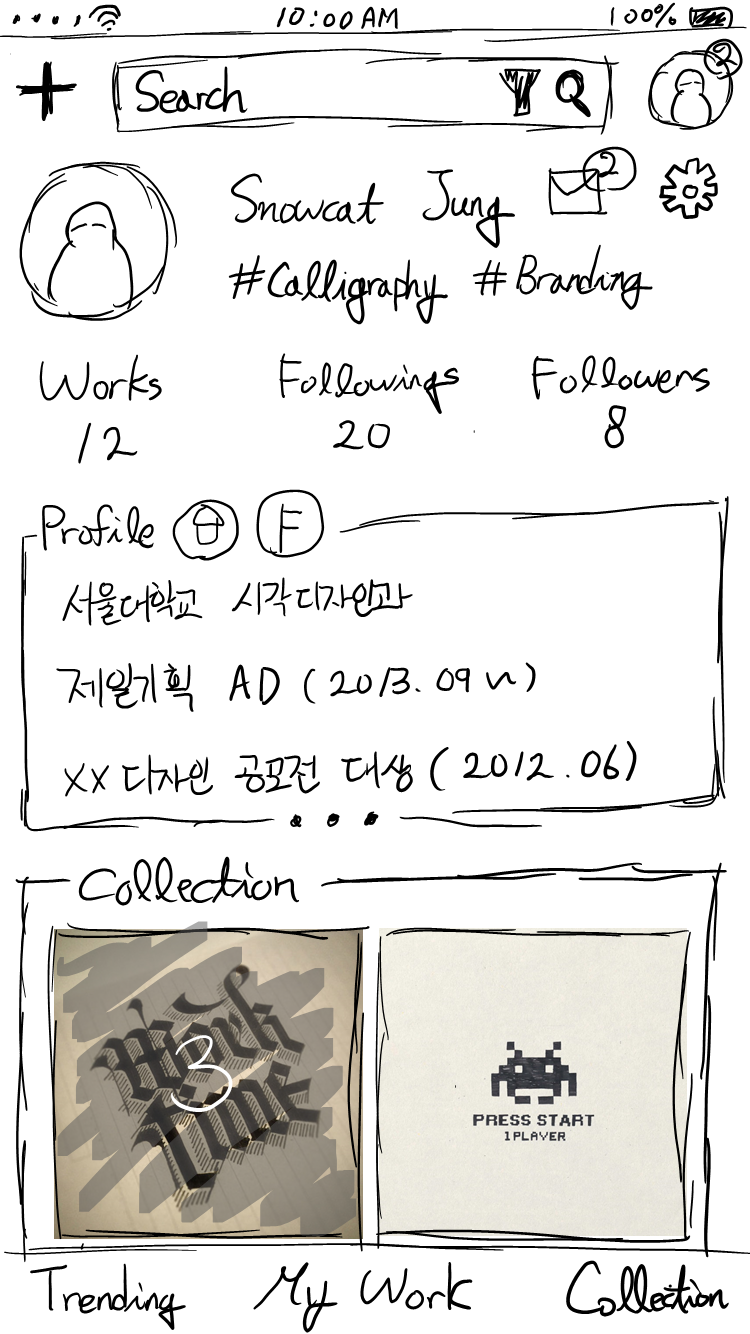 10:00 AM 100%
Search 2
Snowcat Jung 2
#Calligraphy #Branding
Works Followings Followers
12 20 8
Profile F
서울대학교 시각디자인과
제일기획 AD (2013. 09 ~)
XX 디자인 공모전 대상 (2012. 06)
Collection
Work
3
PRESS START
1PLAYER
Trending My Work Collection